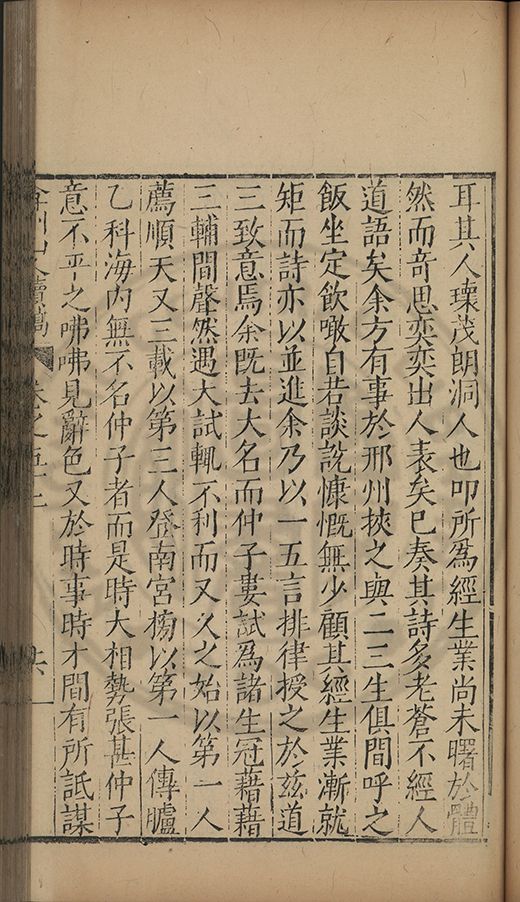 耳其人瓌茂朗洞人也叩所為經生業尚未曙於體
然而奇思奕奕出人表矣已奏其詩多老蒼不經人
道語矣余方有事於邢州挾之與二三生俱間呼之
飯坐定飲噉自若談說慷慨無少顧其經生業漸就
矩而詩亦以並進余乃以一五言排律授之於茲道
三致意焉余既去大名而仲子婁試為諸生冠藉藉
三輔間聲然遇大試輒不利而又久之始以第一人
薦順天又三載以第三人登南宮榜以第一人傳臚
乙科海內無不名仲子者而是時大相勢張甚仲子
意不平之咈咈見辭色又於時事時才間有所詆謀
卷之五十三
六